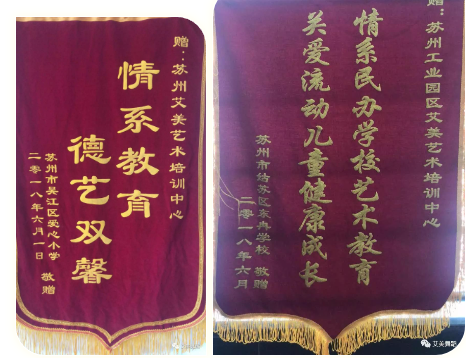 赠:苏州艾美艺术培训中心
情系教育
德艺双馨
苏州市吴江区爱心小学 敬赠
二零一八年六月一日
赠:苏州工业园区艾美艺术培训中心
情系民办学校艺术教育
关爱流动儿童健康成长
苏州市姑苏区冉学校 敬赠
二零一八年六月
艾美舞蹈